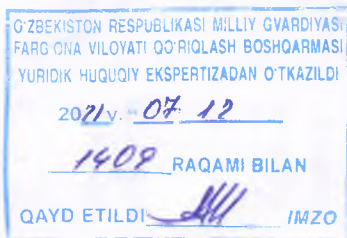 O'ZBEKISTON RESPUBLIKASI MILLIY GVARDIYASI
FARG'ONA VILOYATI QO'RIQLASH BOSHQARMASI
YURIDIK HUQUQIY EKSPERTIZADAN O'TKAZILDI
2021 v. "07 12
1409 RAQAMI BILAN
QAYD ETILDI IMZO